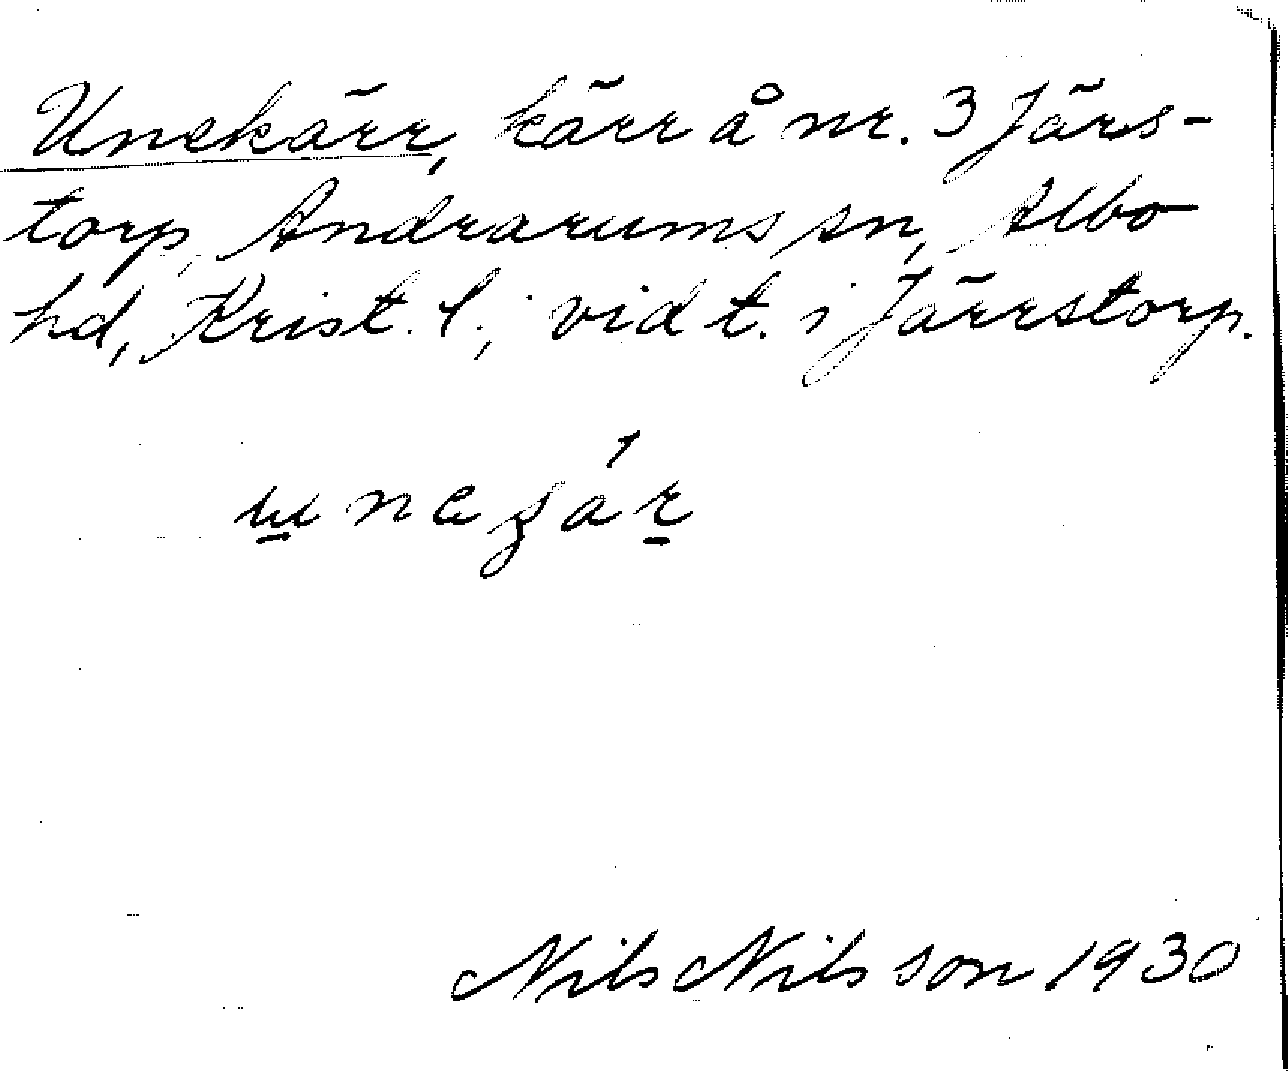 Unekärr, kärr å nr. 3 Järs-
torp, Andrarums sn, Albo
hd, Krist. l.; vid t. i Järrstorp.
Nils Nilsson 1930